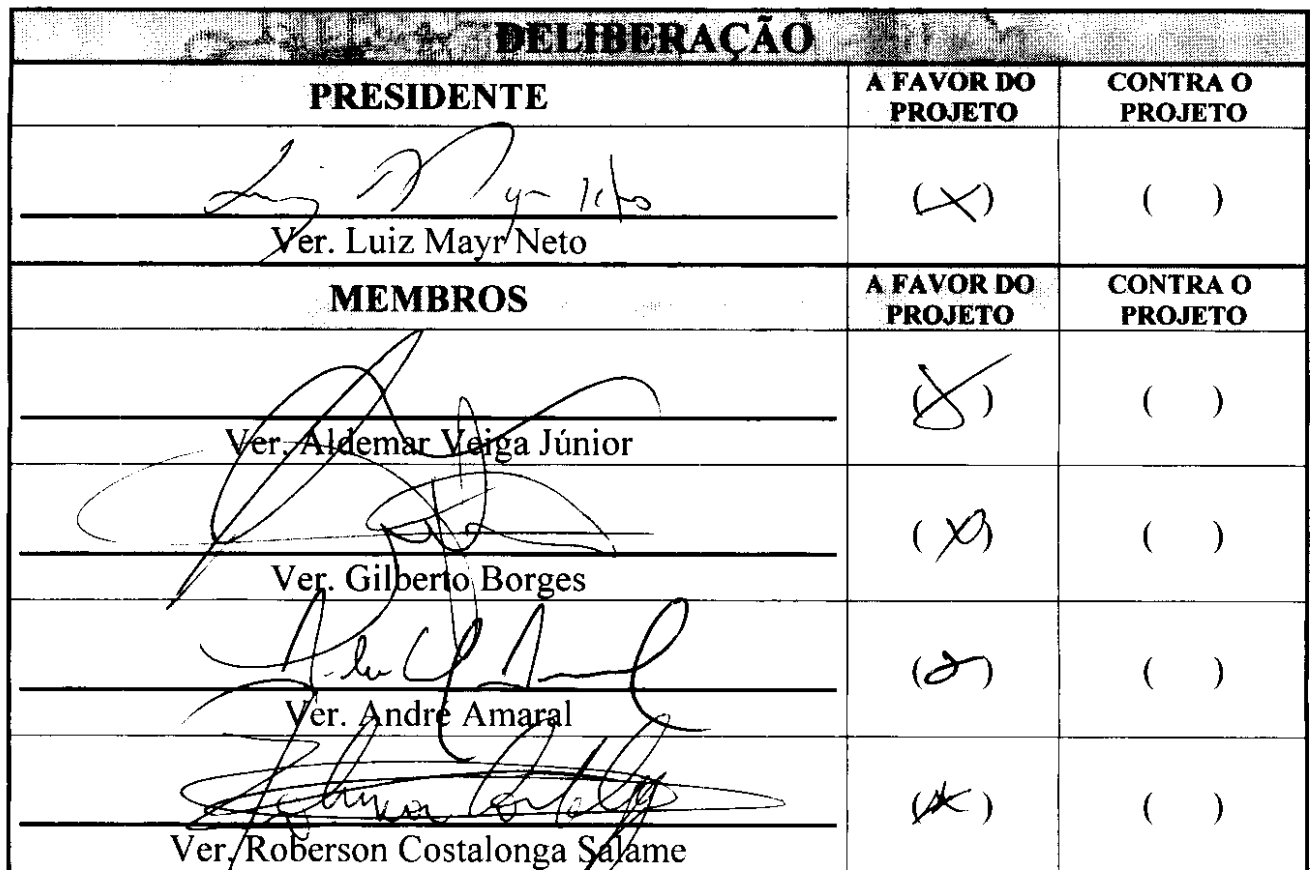 DELIBERAÇÃO
PRESIDENTE
A FAVOR DO PROJETO
CONTRA O PROJETO
Ver. Luiz Mayr Neto
(X)
( )
MEMBROS
A FAVOR DO PROJETO
CONTRA O PROJETO
Ver. Aldemar Veiga Júnior
(X)
( )
Ver. Gilberto Borges
(X)
( )
Ver. André Amaral
( )
Ver. Roberson Costalonga Salame
(X)
( )